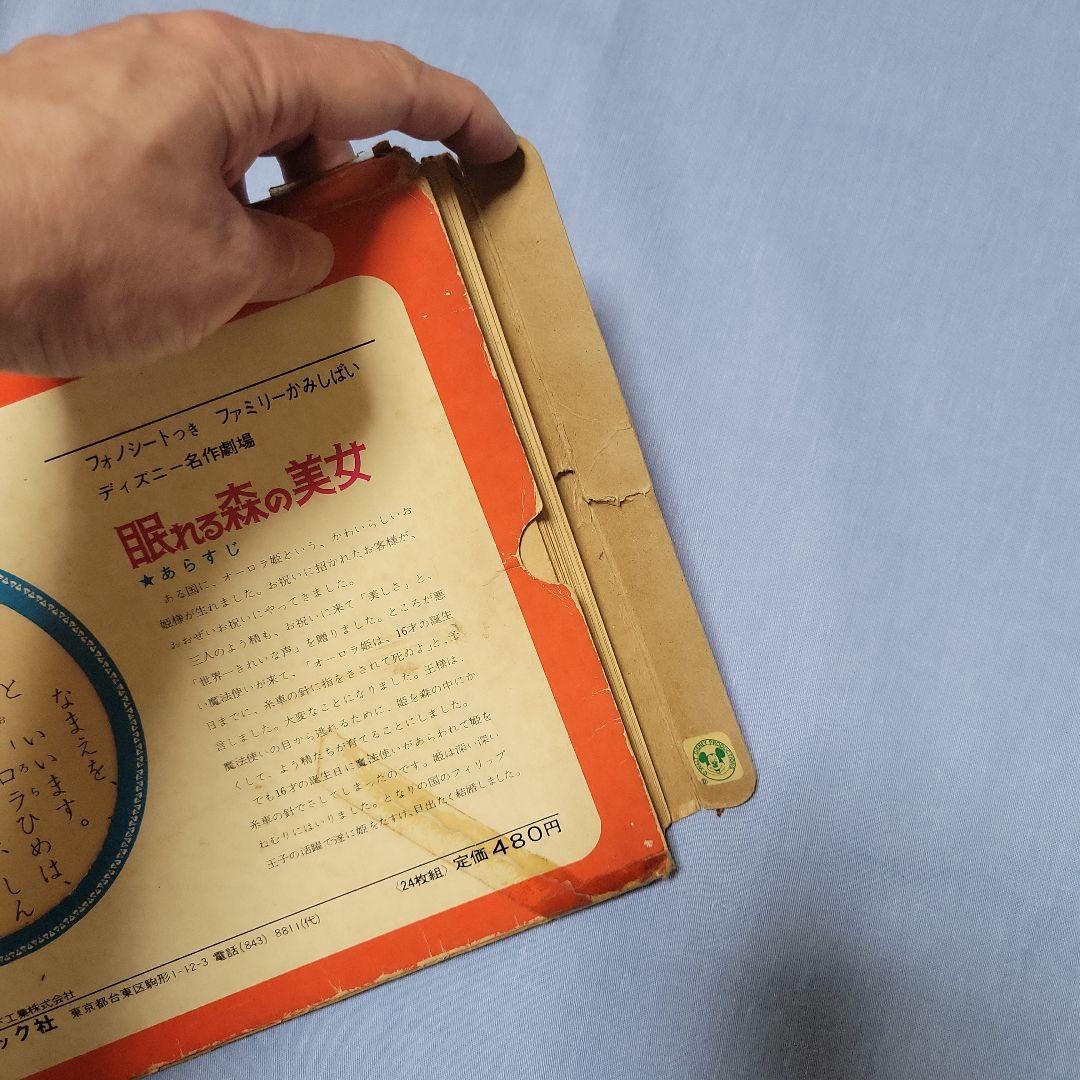 フォノシートつき ファミリーかみしばい
ディズニー名作劇場
眠れる森の美女
★あらすじ
ある国に、オーロラ姫という、かわいらしいお
姫様が生れました。お祝いに招かれたお客様が、
おおぜいお祝いにやってきました。
三人のよう精も、お祝いに来て「美しさ」と、
「世界一きれいな声」を贈りました。ところが悪
い魔法使いが来て、「オーロラ姫は、16才の誕生
日までに、糸車の針に指をさされて死ぬよ」と、予
言しました。大変なことになりました。王様は、
魔法使いの目から逃れるために、姫を森の中にか
くして、よう精たちが育てることにしました。
でも16才の誕生日に魔法使いがあらわれて姫を
糸車の針でさしてしまったのです。姫は深い深い
ねむりにはいりました。となりの国のフィリップ
王子の活躍で遂に姫をたすけ、目出たく結婚しました。
〈24枚組〉 定価 480円
なまえを、
いいます。
ーロラひめは、
しん
工業株式会社
ック社 東京都台東区駒形1-12-3 電話(843) 8811(代)